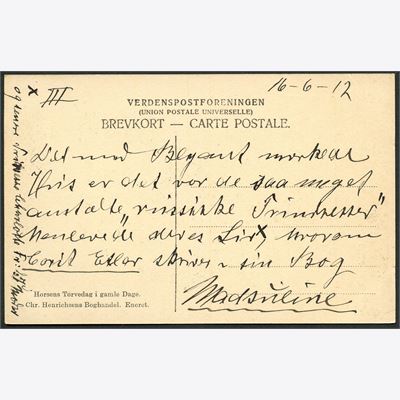 16-6-12
x III
VERDENSPOSTFORENINGEN
(UNION POSTALE UNIVERSELLE)
BREVKORT — CARTE POSTALE.
Det med
Hus er det var de saa meget
omtalte "russiske Prinsesser"
henlevede deres Liv x hvorom
Carit Etlar skriver i sin Bog
Madsuline
Horsens Torvedag i gamle Dage.
Chr. Henrichsens Boghandel. Eneret.
x og